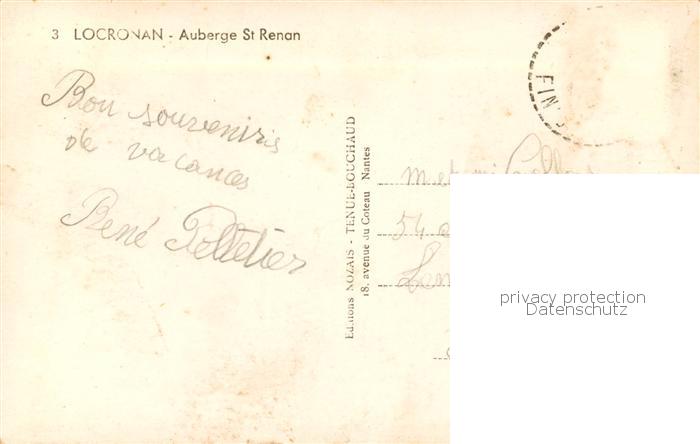 3 LOCRONAN - Auberge St Renan
Bon souvenirs
de vacances
René Pelletier
Editions NOZAIS - TENUE-BOUCHAUD
18, avenue du Coteau Nantes
FIN
54
privacy protection
Datenschutz